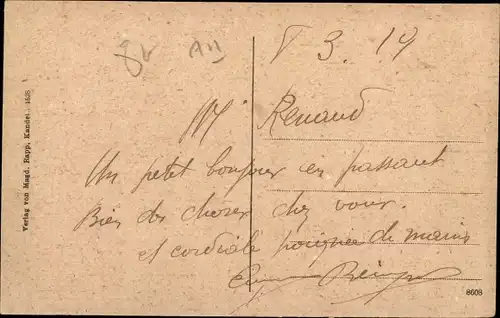 3. 19
Mr Renaud
Un petit bonjour en passant
Bien des choses chez vous.
et cordiale poignée de mains
Verlag von Magd. Rapp, Kandel.
8608